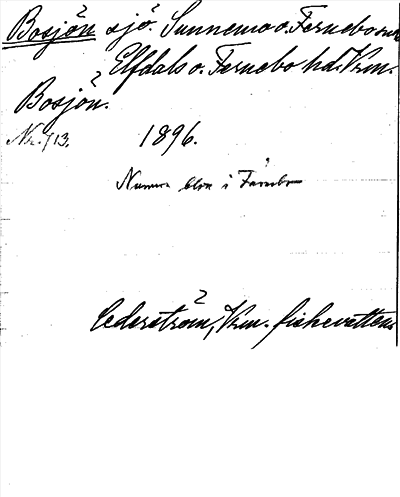 Bosjön sjö. Sunnemo o. Fernebo snr
Elfdals o. Fernebo hd. Vrm.
Bosjön.
Nr. 713. 1896.
Numera blott i Färnebo
Cederström, Vrm. fiskevatten